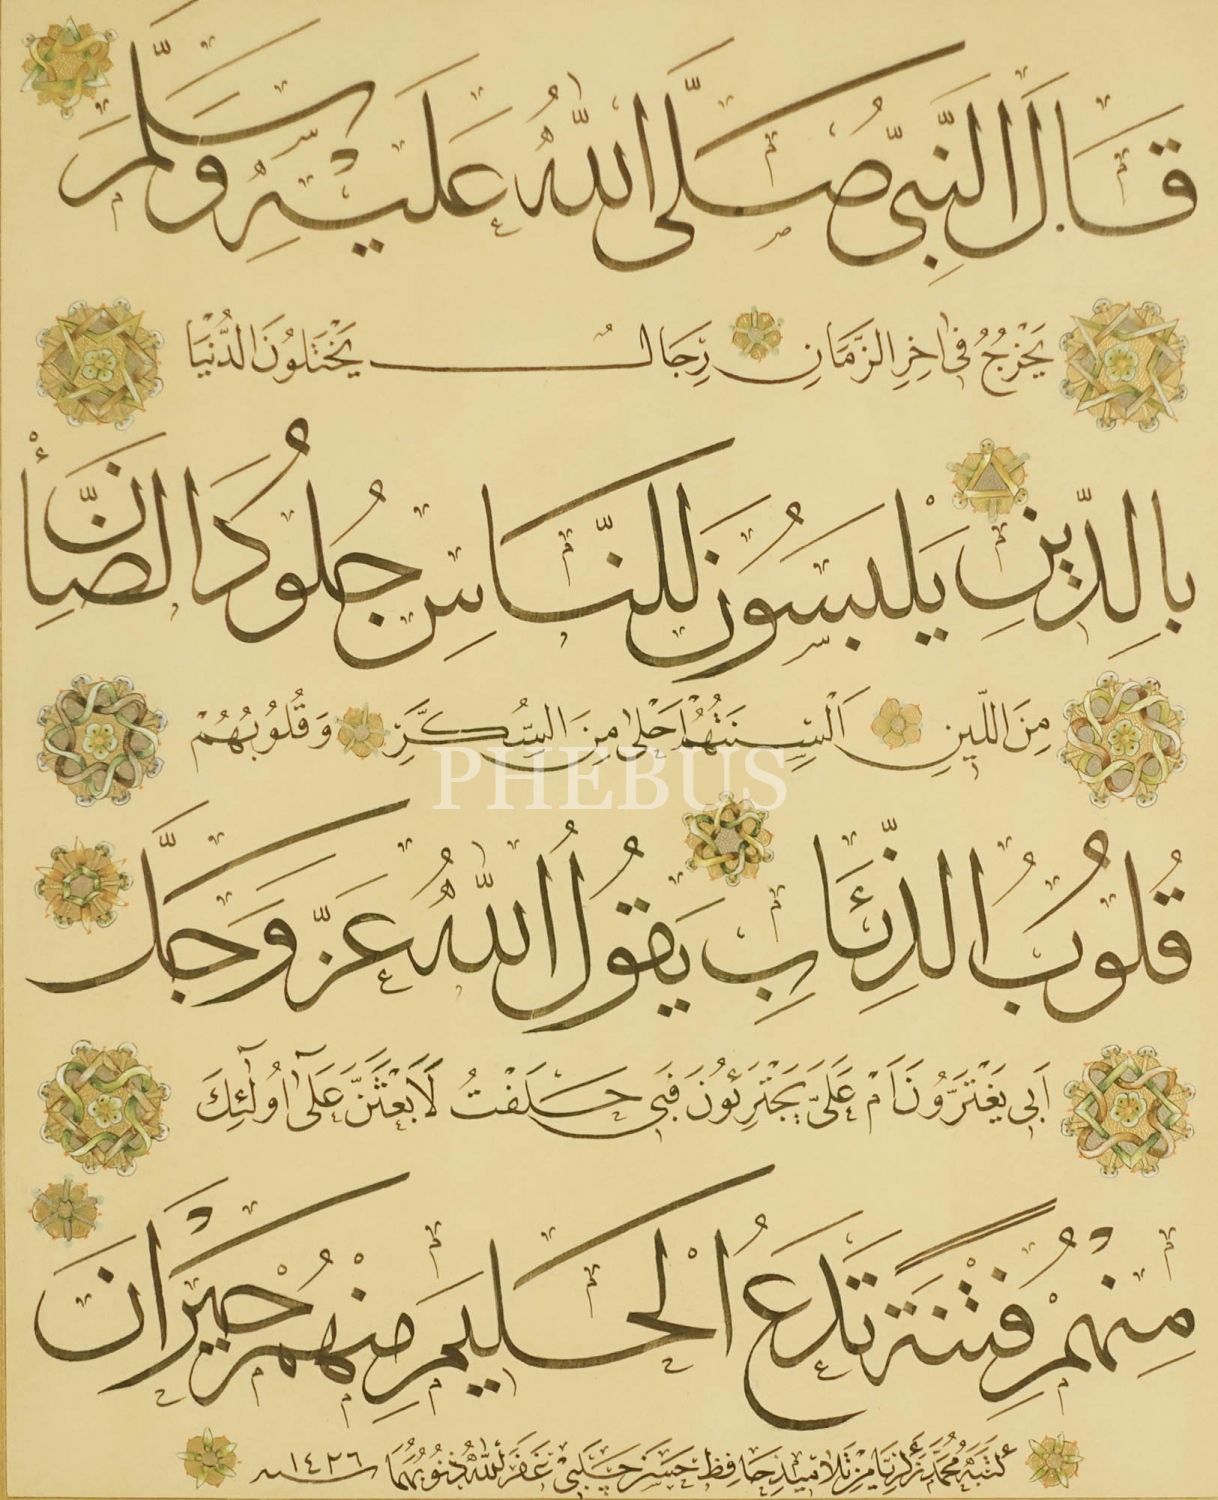 قَالَ النَّبِيُّ صَلَّى اللهُ عَلَيْهِ وَسَلَّمَ
يَخْرُجُ فِي آخِرِ الزَّمَانِ رِجَالٌ يَخْتِلُونَ الدُّنْيَا
بِالدِّينِ يَلْبَسُونَ لِلنَّاسِ جُلُودَ الضَّأْنِ
مِنَ اللِّينِ اَلْسِنَتُهُمْ اَحْلَى مِنَ السُّكَّرِ وَقُلُوبُهُمْ
PHEBUS
قُلُوبُ الذِّئَابِ يَقُولُ اللهُ عَزَّ وَجَلَّ
اَبِي يَغْتَرُّونَ اَمْ عَلَيَّ يَجْتَرِئُونَ فَبِي حَلَفْتُ لَاَبْعَثَنَّ عَلَى اُولٰئِكَ
مِنْهُمْ فِتْنَةً تَدَعُ الْحَلِيمَ مِنْهُمْ حَيْرَانَ
كَتَبَهُ مُحَمَّد زَكَرِيَّا مِنْ تَلَامِيذِ حَافِظ حَسَن چَلَبِي غَفَرَ اللهُ ذُنُوبَهُمَا سنه ١٤٢٦